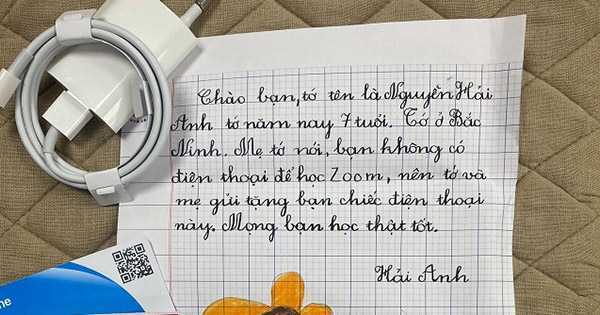 Chào bạn, tớ tên là Nguyễn Hải
Anh tớ năm nay 7 tuổi. Tớ ở Bắc
Ninh. Mẹ tớ nói, bạn không có
điện thoại để học Zoom, nên tớ và
mẹ gửi tặng bạn chiếc điện thoại
này. Mong bạn học thật tốt.
Hải Anh
ne